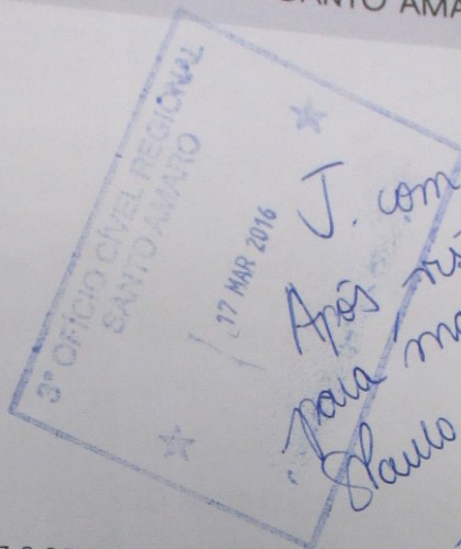 SANTO AMA
3º OFÍCIO CÍVEL REGIONAL
SANTO AMARO
17 MAR 2016
J. com
Após
para
SPaulo